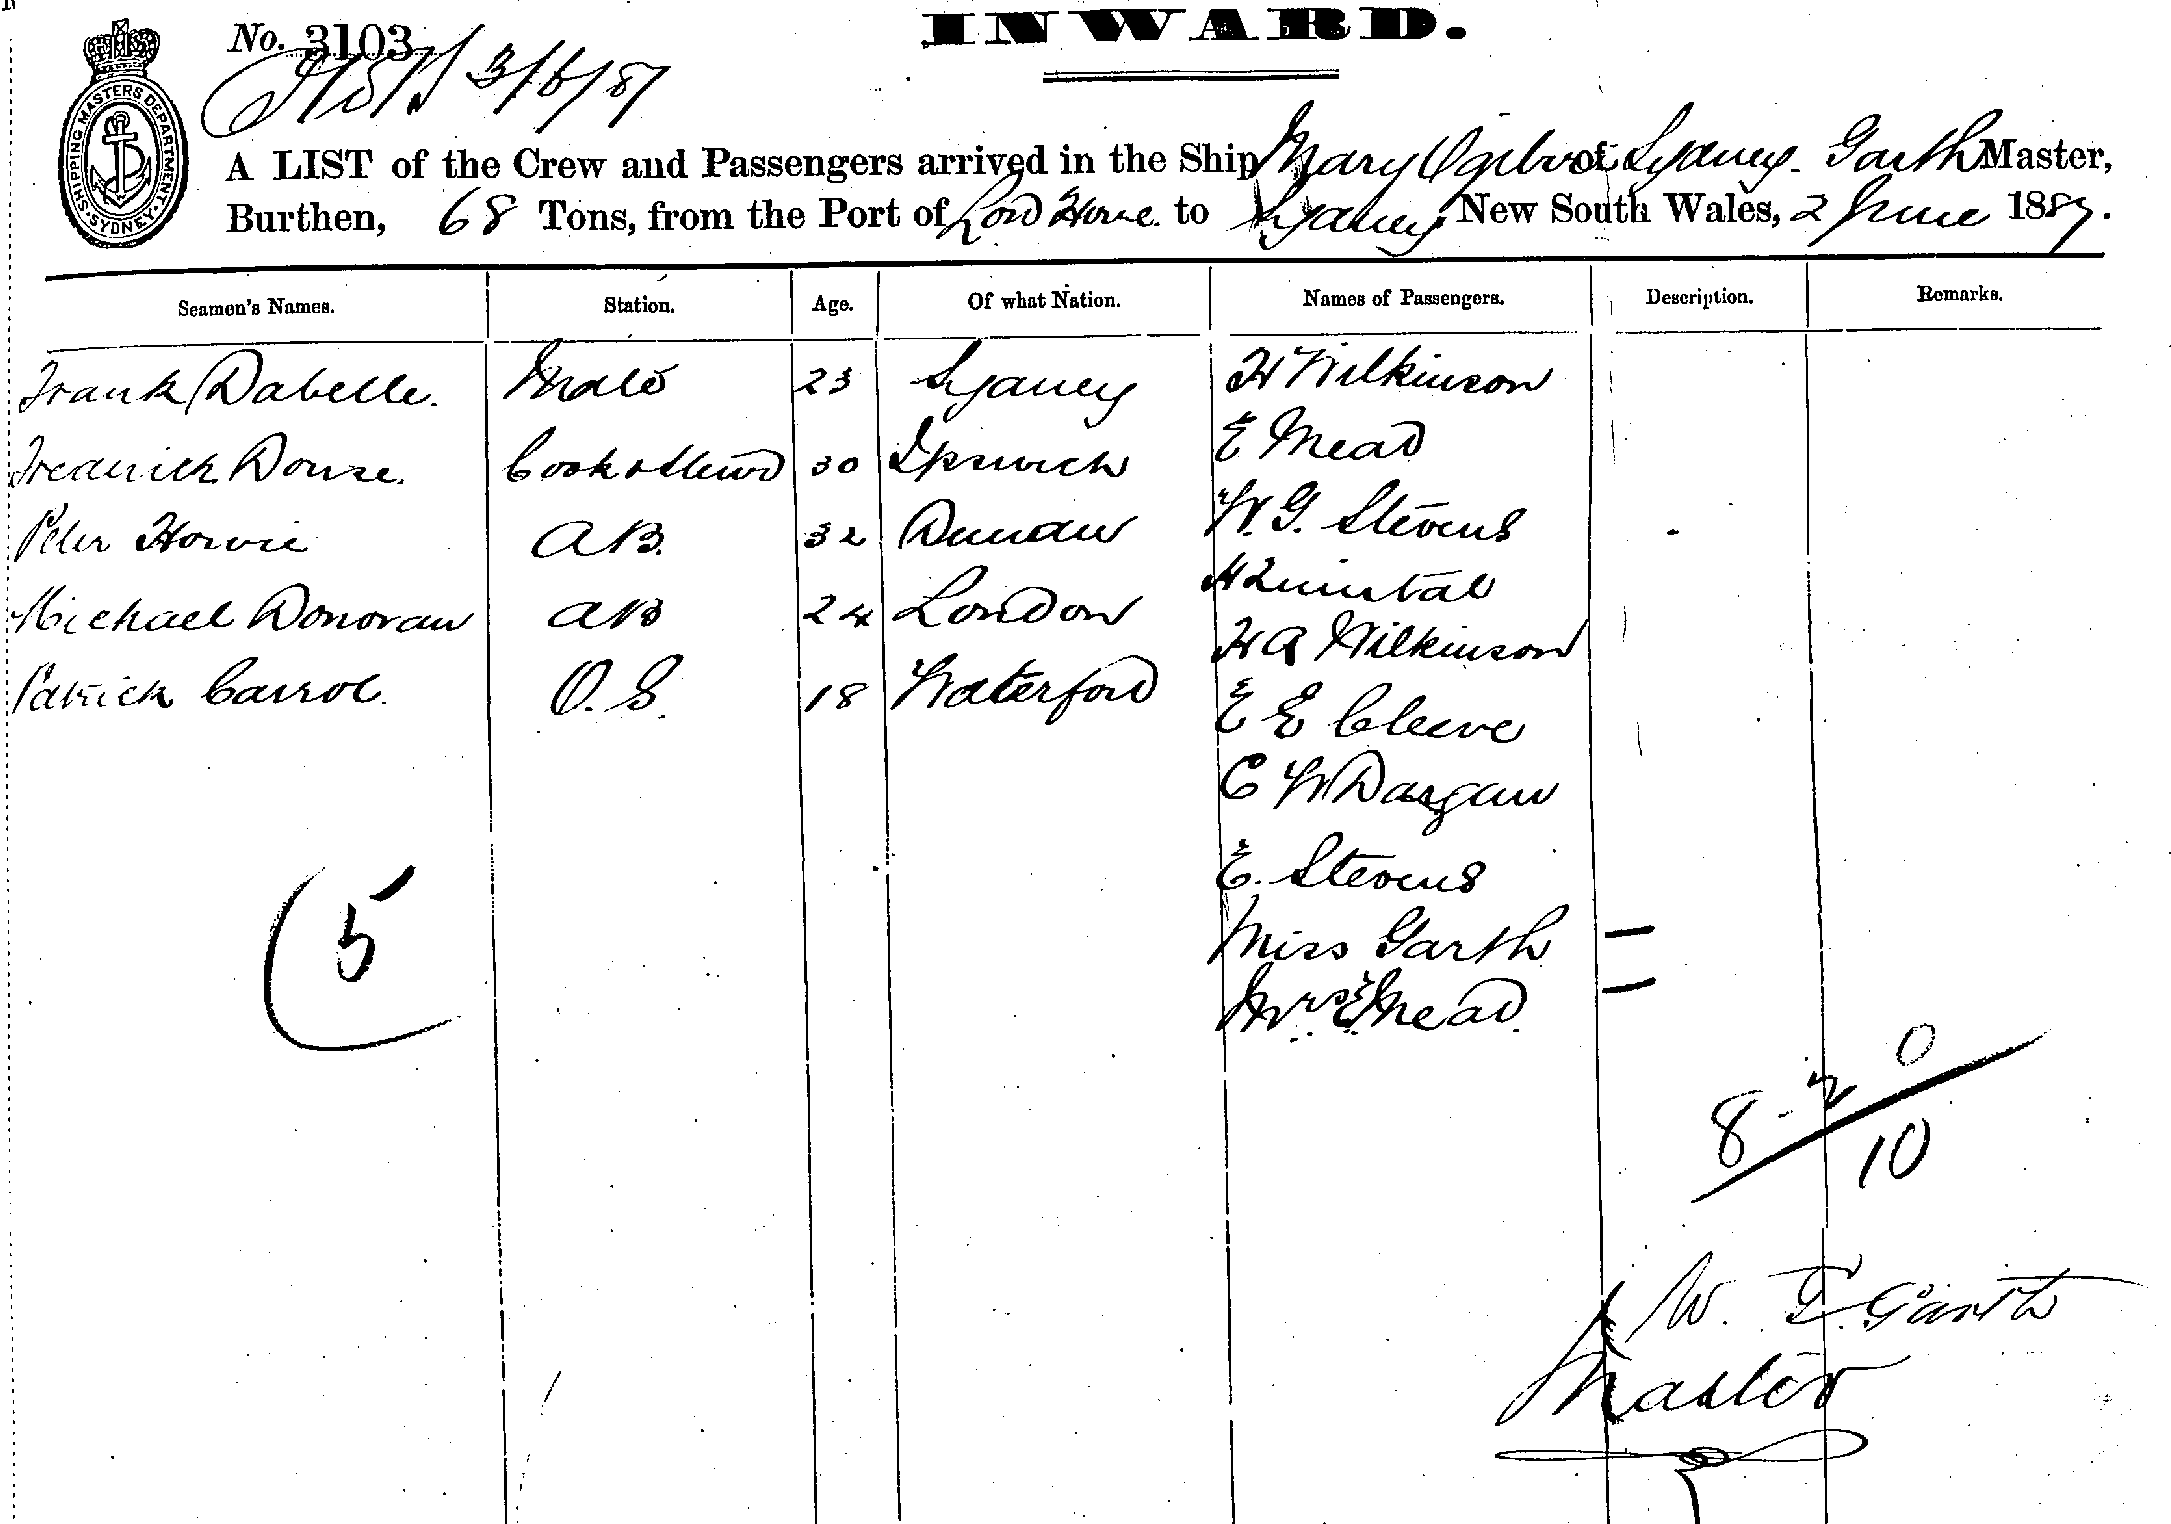 INWARD.
No. 3103
3/6/87
SHIPPING MASTERS DEPARTMENT. SYDNEY.
A LIST of the Crew and Passengers arrived in the Ship Mary Ogilvie of Sydney. Garth Master,
Burthen, 68 Tons, from the Port of Lord Howe to Sydney New South Wales, 2 June 1887.
Seamen's Names. Station. Age. Of what Nation. Names of Passengers. Description. Remarks.
Frank Dabelle. Mate 23 Sydney H Wilkinson
Frederick Dowse. Cook & Stewd 30 Ipswich E Mead
Peter Howie AB. 32 Dundee W. G. Stevens
Michael Donovan AB 24 London H Quintal
Patrick Carrol. O.S. 18 Waterford H A Wilkinson
E E Cleeve
C W Dargan
E. Stevens
Miss Garth
Mrs E Mead
5
8 - 2 0
10
W. T. Garth
Master